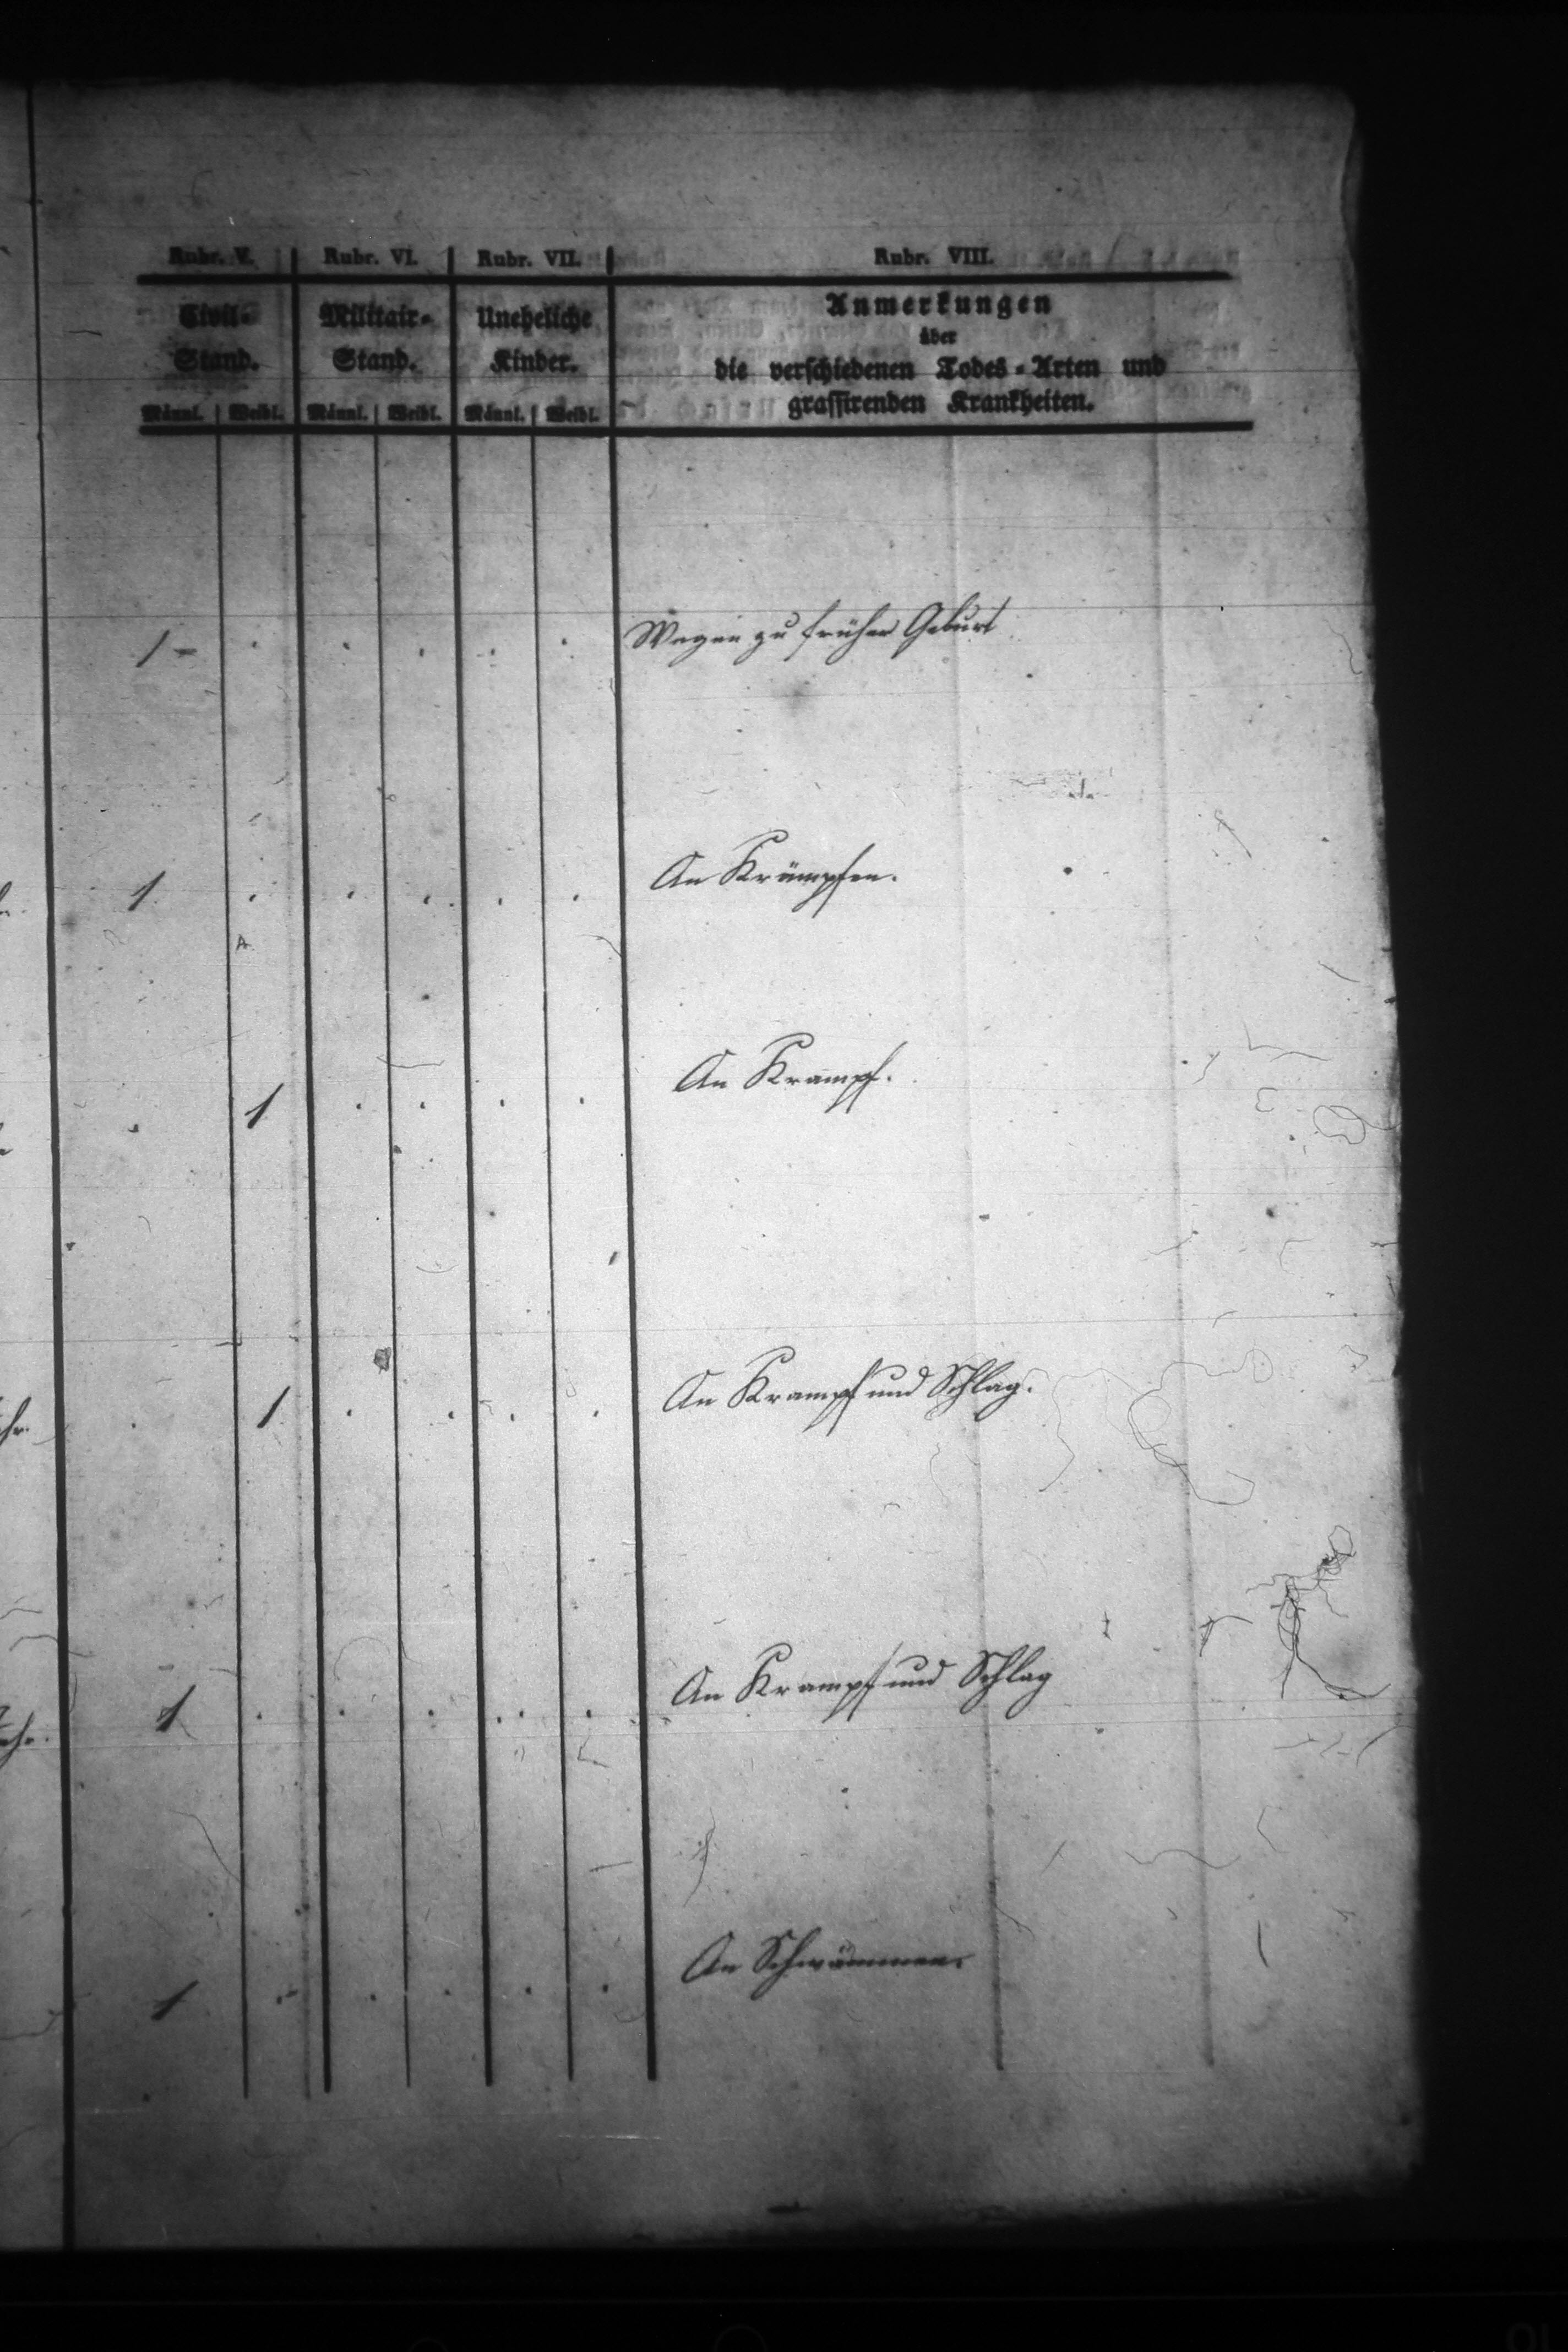 Rubr. V. Rubr. VI. Rubr. VII. Rubr. VIII.
Civil- Militair- Uneheliche Anmerkungen
über
Stand. Stand. Kinder. die verschiedenen Todes-Arten und
Männl. Weibl. Männl. Weibl. Männl. Weibl. grassirenden Krankheiten.
1 - . . . . . Wegen zu früher Geburt
1 . . . . . An Krämpfen.
. 1 . . . . An Krampf.
. 1 . . . . An Krampf und Schlag.
1 . . . . . An Krampf und Schlag
1 . . . . . An Schwämmen.